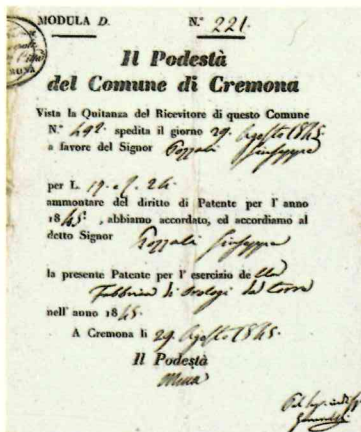 MODULA D. N.° 221.
Il Podestà
del Comune di Cremona
Vista la Quitanza del Ricevitore di questo Comune
N.° 492. spedita il giorno 29. Agosto 1845.
a favore del Signor Pozzali Giuseppe
per L. 17.
ammontare del diritto di Patente per l'anno
1845. , abbiamo accordato, ed accordiamo al
detto Signor Pozzali Giuseppe
la presente Patente per l'esercizio de
Fabbrica di Orologi da torre
nell'anno 1845.
A Cremona li 29. Agosto 1845.
Il Podestà